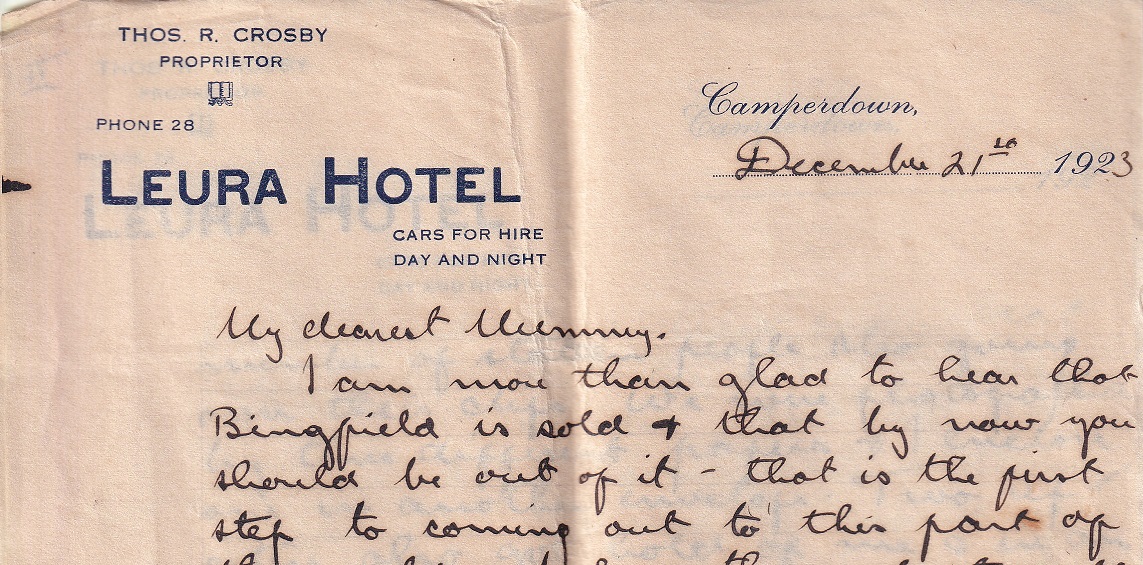 THOS. R. CROSBY
PROPRIETOR
PHONE 28
LEURA HOTEL
CARS FOR HIRE
DAY AND NIGHT
Camperdown,
December 21st 1923
My dearest Mummy.
I am more than glad to hear that
Bingfield is sold & that by now you
should be out of it - that is the first
step to coming out to this part of